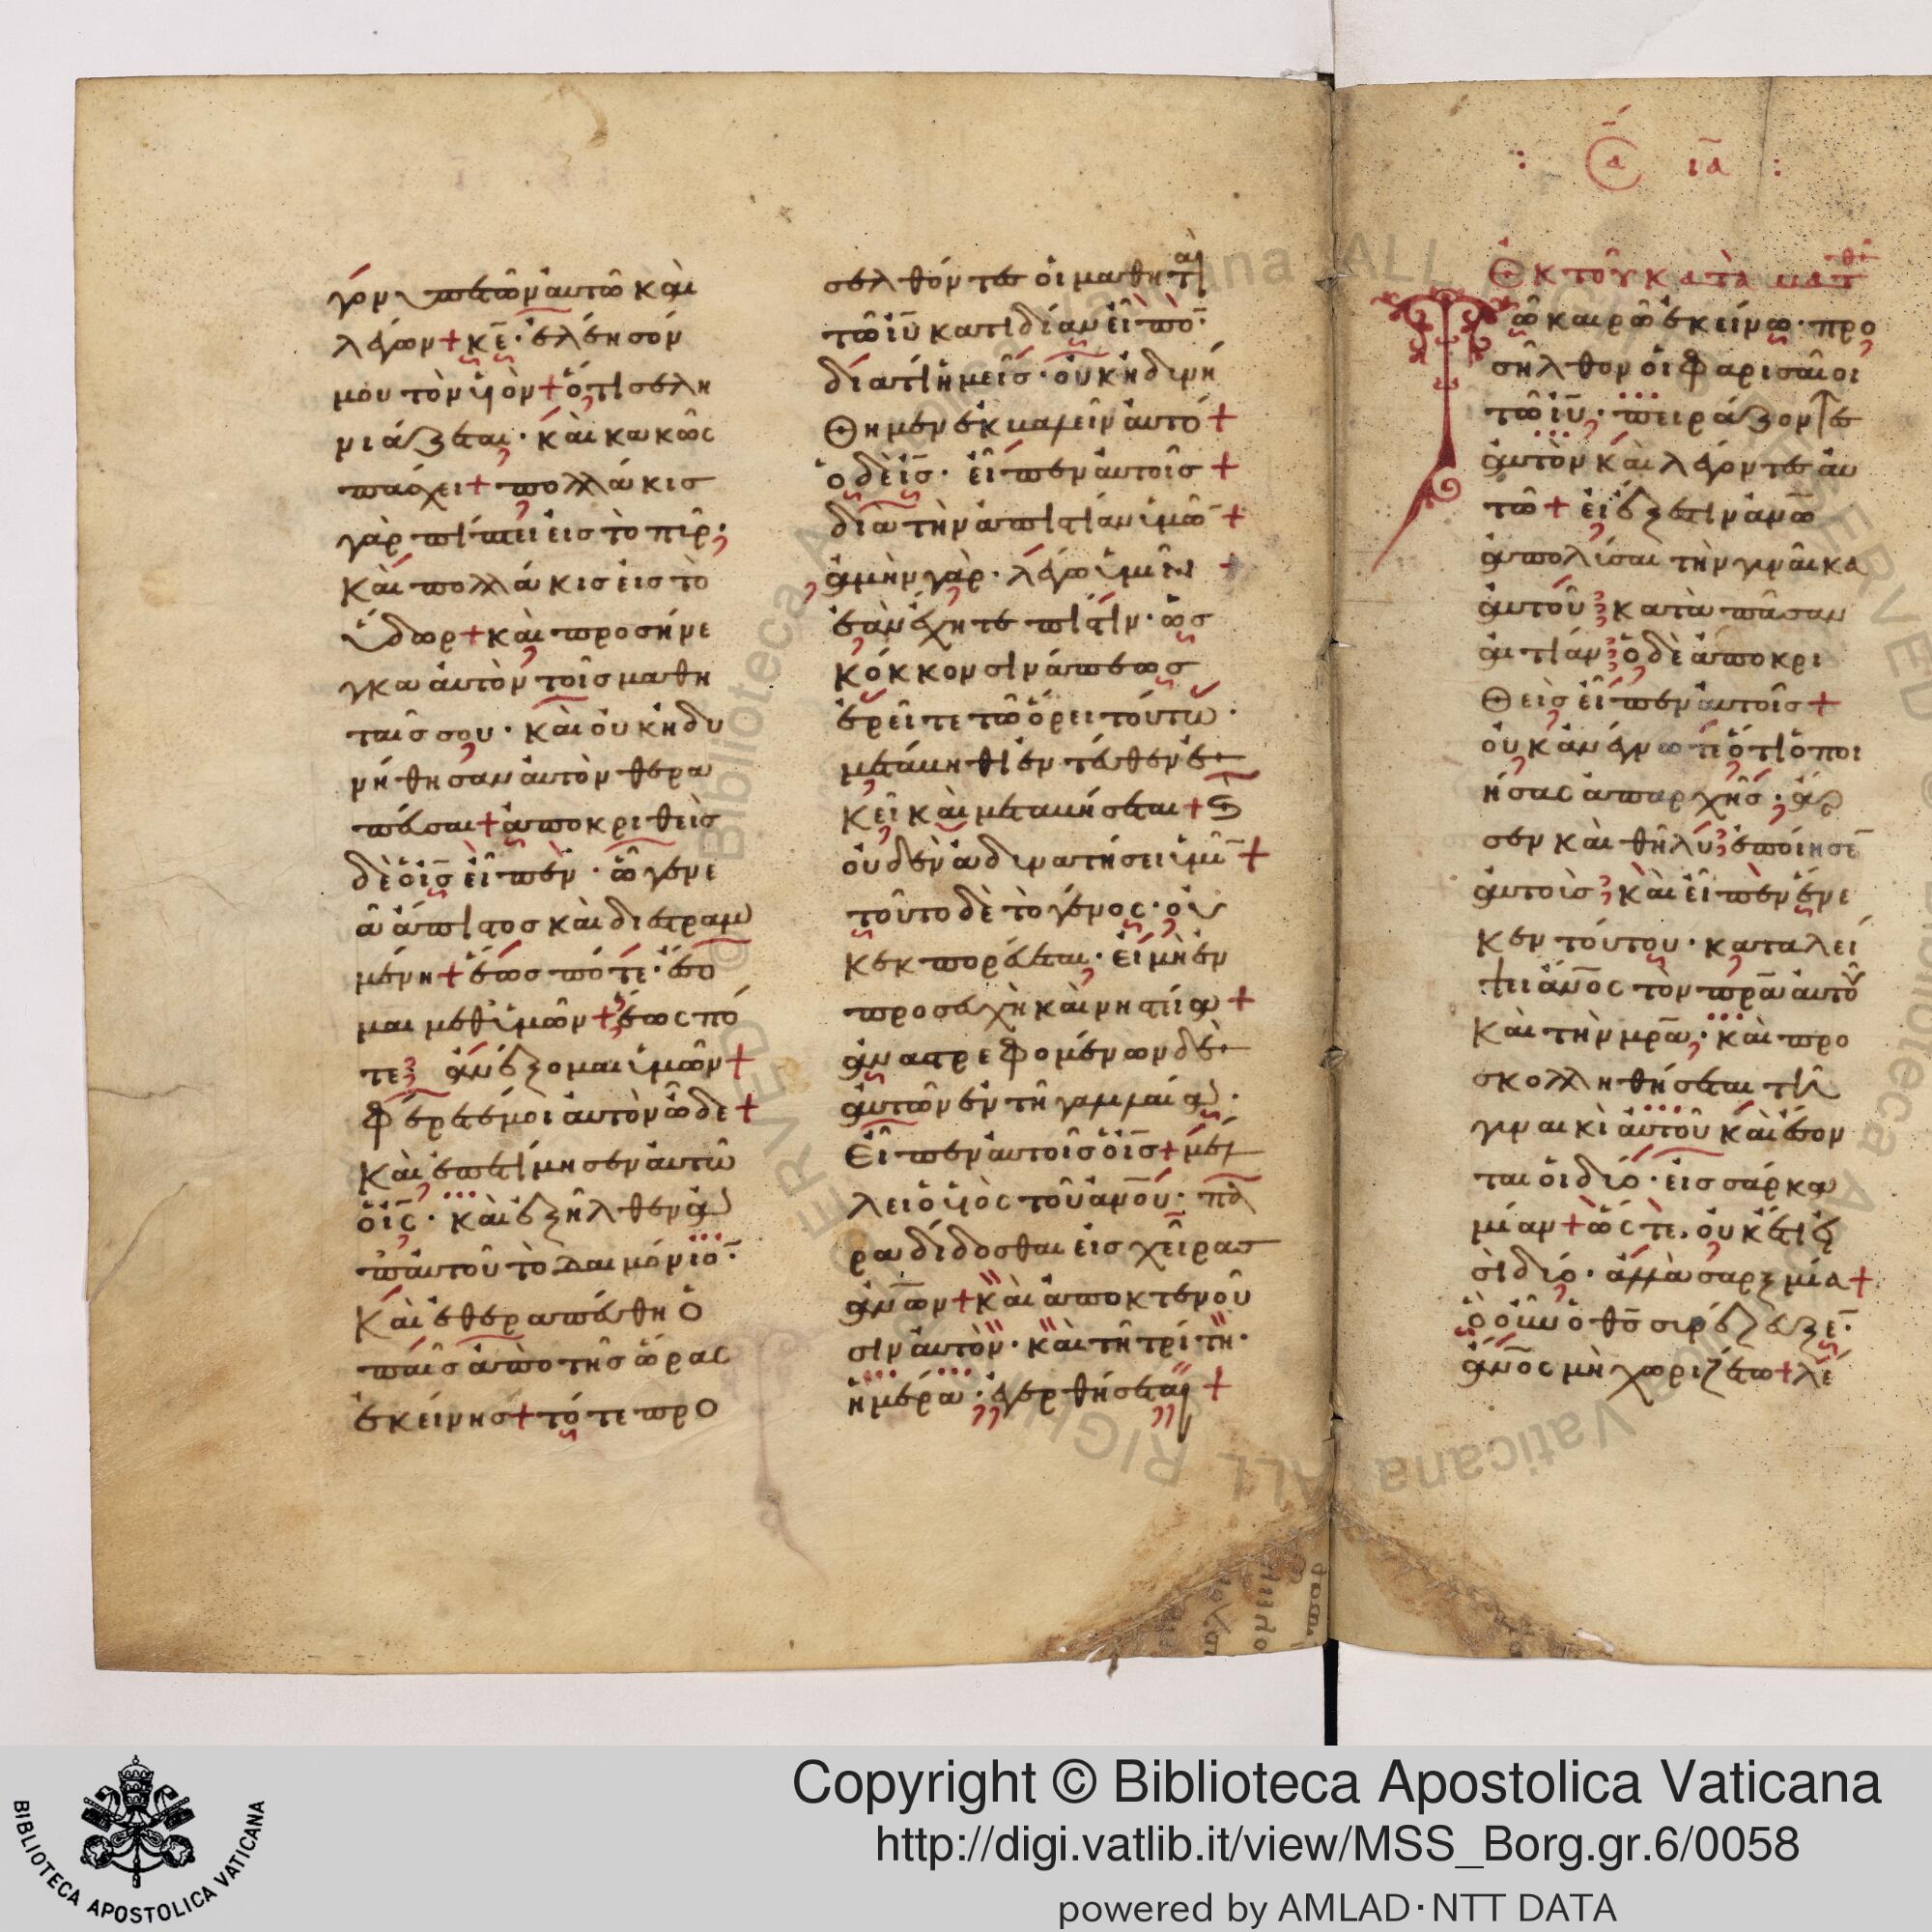 γονυπετῶν αὐτῶ καὶ
λέγων + κ̅ε̅· ἐλέησόν
μου τὸν υἱὸν + ὅτι σελη
νιάζεται· καὶ κακῶς
πάσχει + πολλάκις
γὰρ πίπτει εἰς τὸ πῦρ·
καὶ πολλάκις εἰς τὸ
ὕδωρ + καὶ προσήνε
γκα αὐτὸν τοῖς μαθη
ταῖς σου· καὶ οὐκ ἠδυ
νήθησαν αὐτὸν θερα
πεῦσαι + ἀποκριθεὶς
δὲ ὁ ι̅ς̅ εἶπεν· ὦ γενε
ὰ ἄπιστος καὶ διεστραμ
μένη + ἕως πότε· ἔσο
μαι μεθ' ὑμῶν + ἕως πό
τε ἀνέξομαι ὑμῶν +
φέρετέ μοι αὐτὸν ὧδε +
καὶ ἐπετίμησεν αὐτῶ
ὁ ι̅ς̅· καὶ ἐξῆλθεν ἀ
π' αὐτοῦ τὸ δαιμόνιο̅·
καὶ ἐθεραπεύθη ὁ
παῖς ἀπὸ τῆς ὥρας
ἐκείνης + τότε προ
σελθόντες οἱ μαθηταὶ
τῶ ι̅υ̅ κατιδίαν εἶπο̅·
διατί ἡμεῖς· οὐκ ἠδυνή
θημεν ἐκβαλεῖν αὐτό +
ὁ δὲ ι̅ς̅· εἶπεν αὐτοῖς +
διὰ τὴν ἀπιστίαν ὑμῶ̅ +
ἀμὴν γὰρ· λέγω ὑμῖν +
ἐὰν ἔχητε πίστιν· ὡς
κόκκον σινάπεως
ἐρεῖτε τῶ ὄρει τούτω·
μετάβηθι ἐντεῦθεν ἐ
κεῖ καὶ μεταβήσεται + ϗ
οὐδὲν ἀδυνατήσει ὑμῖ̅ +
τοῦτο δὲ τὸ γένος· οὐ
κ ἐκπορεύεται· εἰ μὴ ἐν
προσευχῆ καὶ νηστεία +
ἀναστρεφομένων δὲ
αὐτῶν ἐν τῆ γαλιλαία·
εἶπεν αὐτοῖς ὁ ι̅ς̅ + μέλ
λει ὁ υἱὸς τοῦ α̅ν̅ο̅υ̅· πα
ραδίδοσθαι εἰς χεῖρας
α̅ν̅ω̅ν̅ + καὶ ἀποκτενοῦ
σιν αὐτόν· καὶ τῆ τρίτη·
ἡμέρα· ἐγερθήσεται +
: Σα ι̅α̅ :
ἐκ τοῦ κατὰ ματθ
Τῶ καιρῶ ἐκείνω· προ
σῆλθον οἱ φαρισαῖοι
τῶ ι̅υ̅· πειράζοντες
αὐτὸν καὶ λέγοντες αὐ
τῶ + εἰ ἔξεστιν α̅ν̅ω̅
ἀπολῦσαι τὴν γυναῖκα
αὐτοῦ κατὰ πᾶσαν
αἰτίαν ὁ δὲ ἀποκρι
θεὶς εἶπεν αὐτοῖς +
οὐκ ἀνέγνωτε ὅτι ὁ ποι
ήσας ἀπαρχῆς· ἄρ
σεν καὶ θῆλυ ἐποίησε̅
αὐτοὺς καὶ εἶπεν ἕνε
κεν τούτου· καταλεί
ψει α̅ν̅ο̅ς τὸν π̅ρ̅α̅ αὐτοῦ
καὶ τὴν μ̅ρ̅α̅· καὶ προ
σκολληθήσεται τῆ
γυναικὶ αὐτοῦ καὶ ἔσον
ται οἱ δύο· εἰς σάρκα
μίαν + ὥστε, οὐκέτι εἰ
σὶ δύο· ἀλλὰ σὰρξ μία +
ὃ οὖν ὁ θ̅ς̅ συνέζευξε̅·
α̅ν̅ο̅ς μὴ χωριζέτω + λέ
Copyright © Biblioteca Apostolica Vaticana
http://digi.vatlib.it/view/MSS_Borg.gr.6/0058
powered by AMLAD·NTT DATA
BIBLIOTECA APOSTOLICA VATICANA